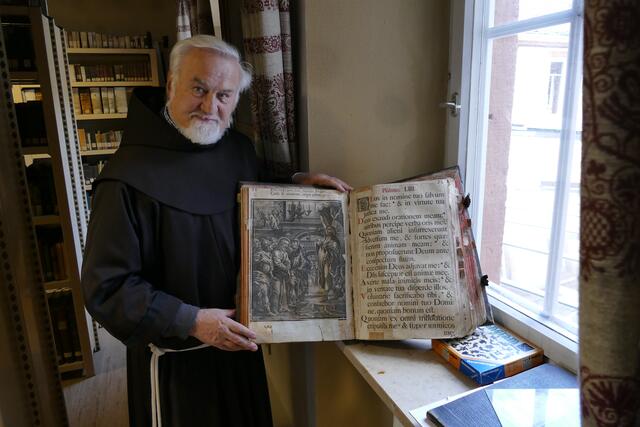 Psalmus LIII.
Deus in nomine tuo salvum
me fac: * & in virtute tua
judica me.
Deus exaudi orationem meam:
auribus percipe verba oris mei.
Quoniam alieni insurrexerunt
adversum me, & fortes quæ-
sierunt animam meam: * &
non proposuerunt Deum ante
conspectum suum.
Ecce enim Deus adjuvat me: * &
Dñs susceptor est animæ meæ.
Averte mala inimicis meis: * &
in veritate tua disperde illos.
Voluntarie sacrificabo tibi, * &
confitebor nomini tuo Domi-
ne, quoniam bonum est.
Quoniam ex omni tribulatione
eripuisti me: * & super inimicos
me.